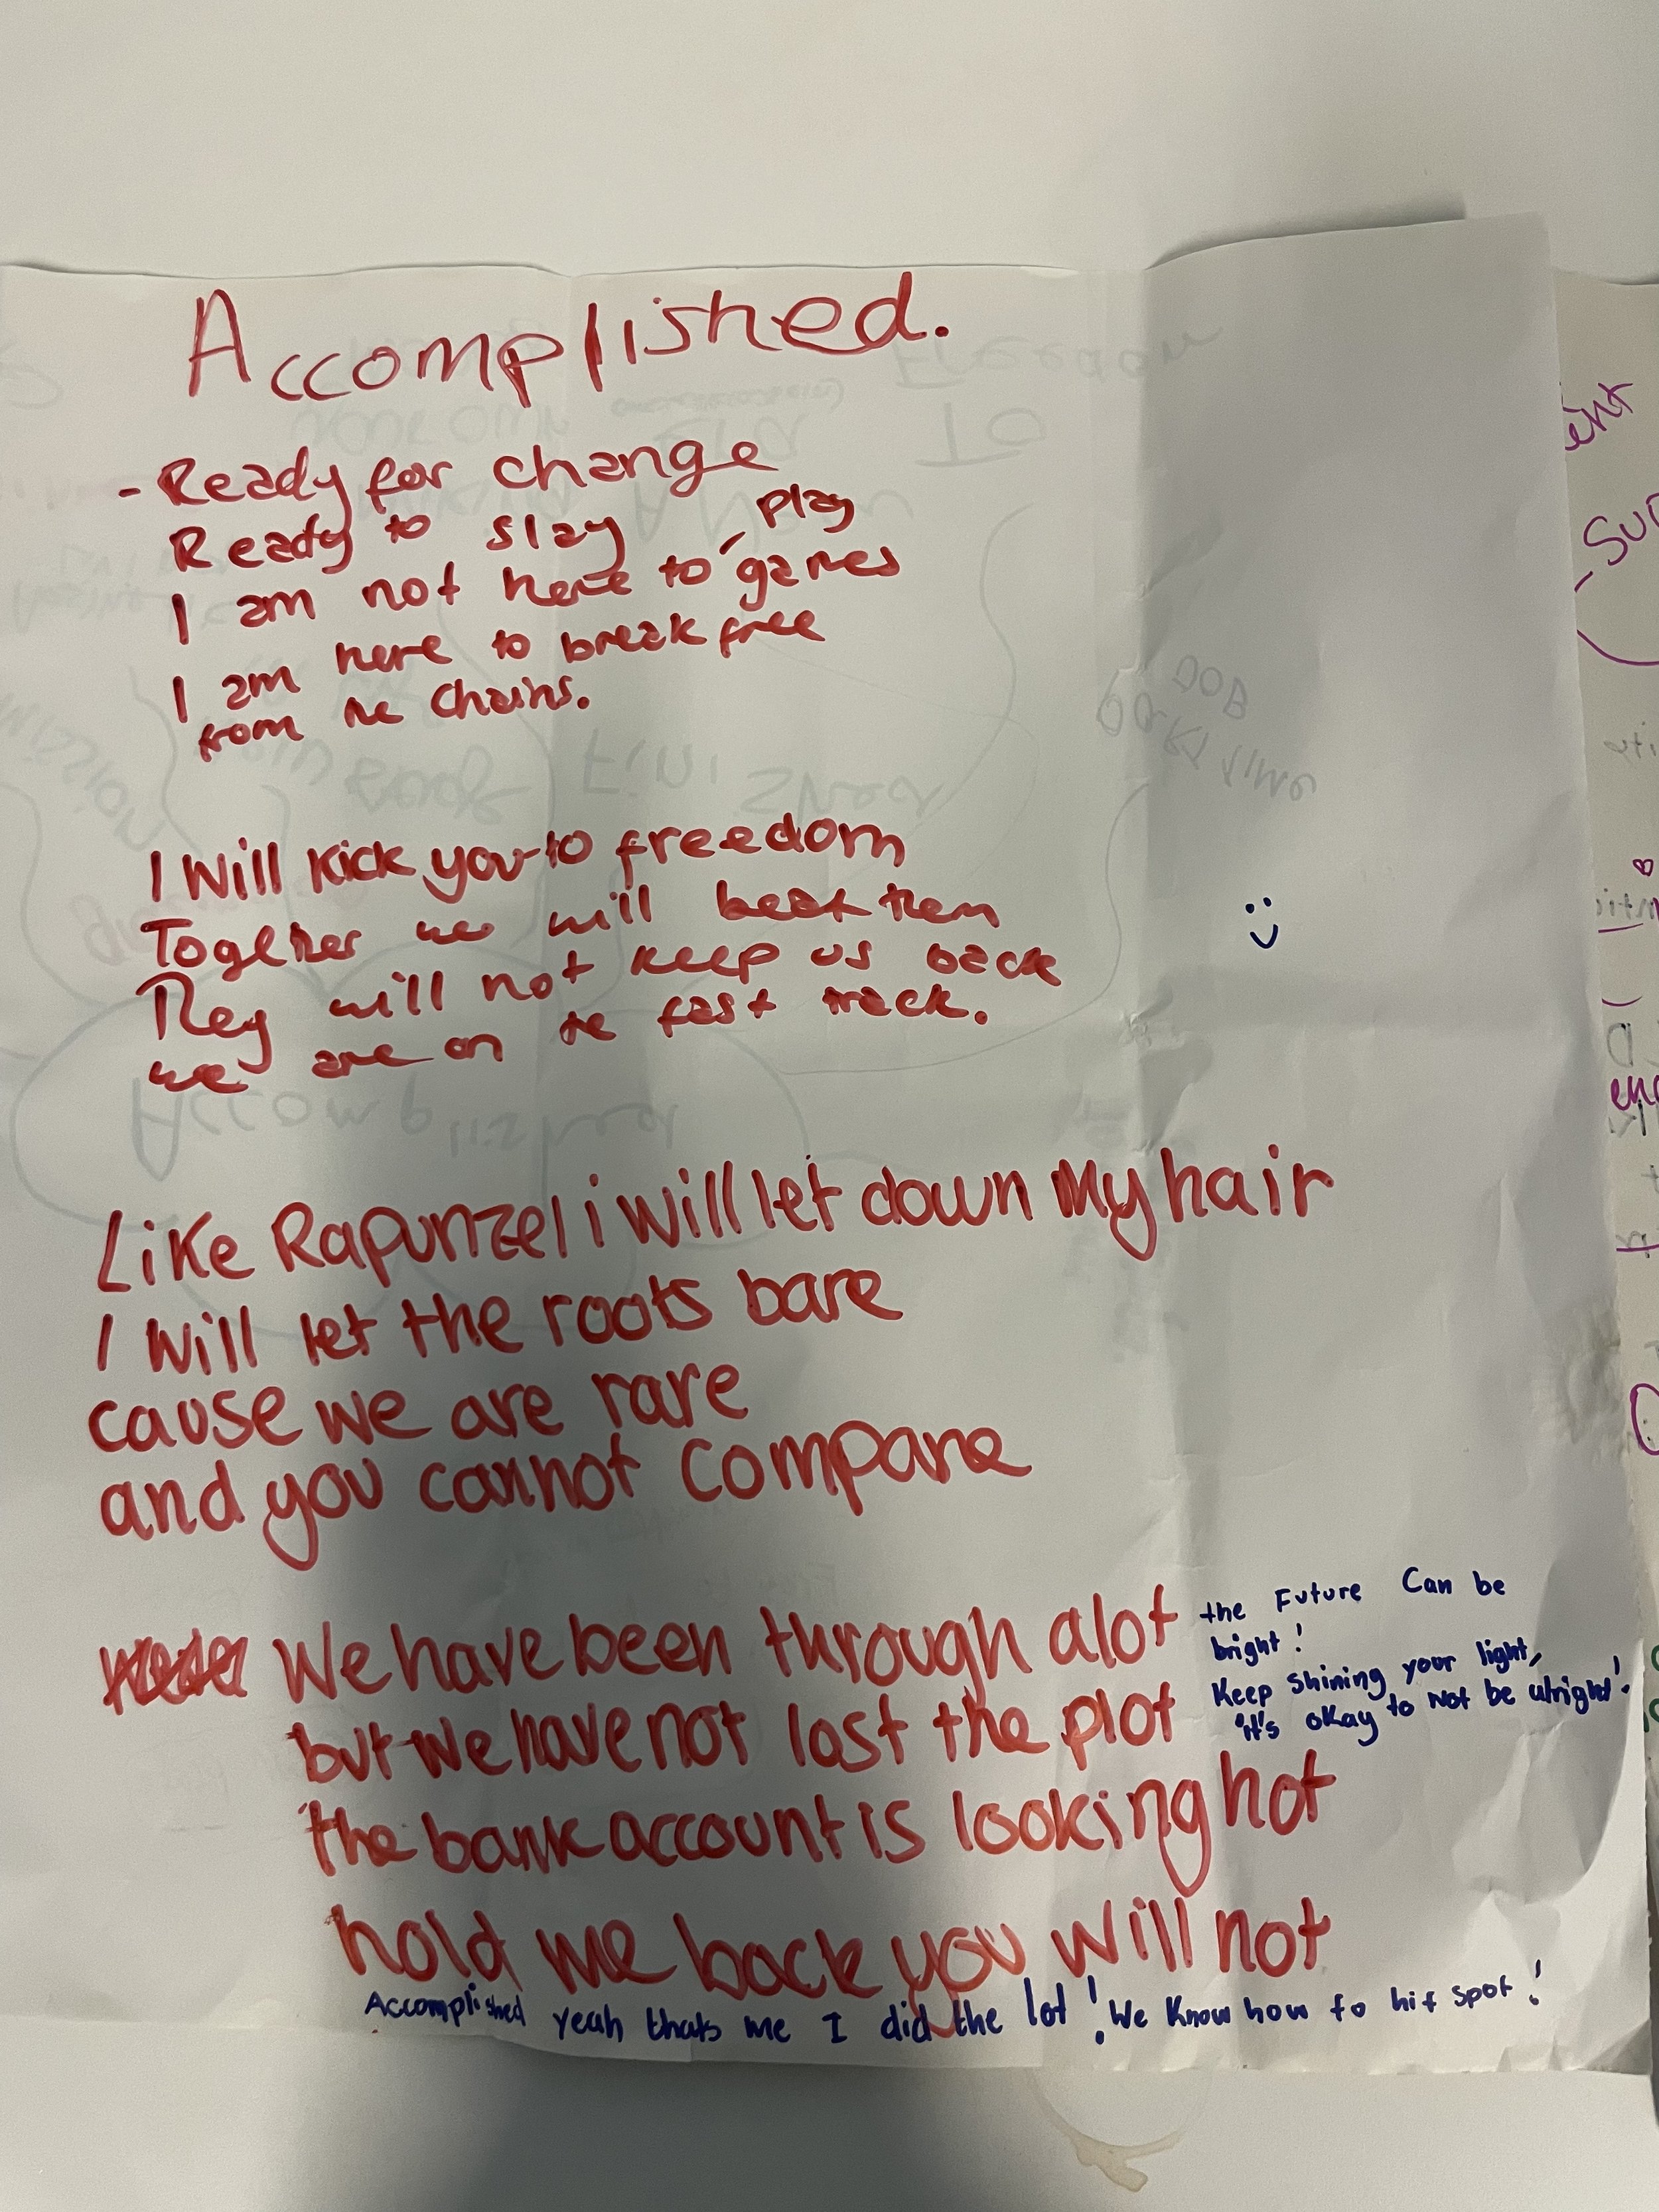 Accomplished.
- Ready for change
Ready to slay
play
I am not here to games
I am here to break free
from the chains.
I will kick you to freedom
Together we will beat them
They will not keep us back
we are on the fast track.
Like Rapunzel i will let down My hair
I will let the roots bare
cause we are rare
and you cannot compare
We have been through alot
but we have not lost the plot
the bank account is looking hot
hold me back you will not
the Future Can be
bright!
Keep shining your light,
it's okay to not be alright!
Accomplished yeah thats me I did the lot! We know how to hit spot!